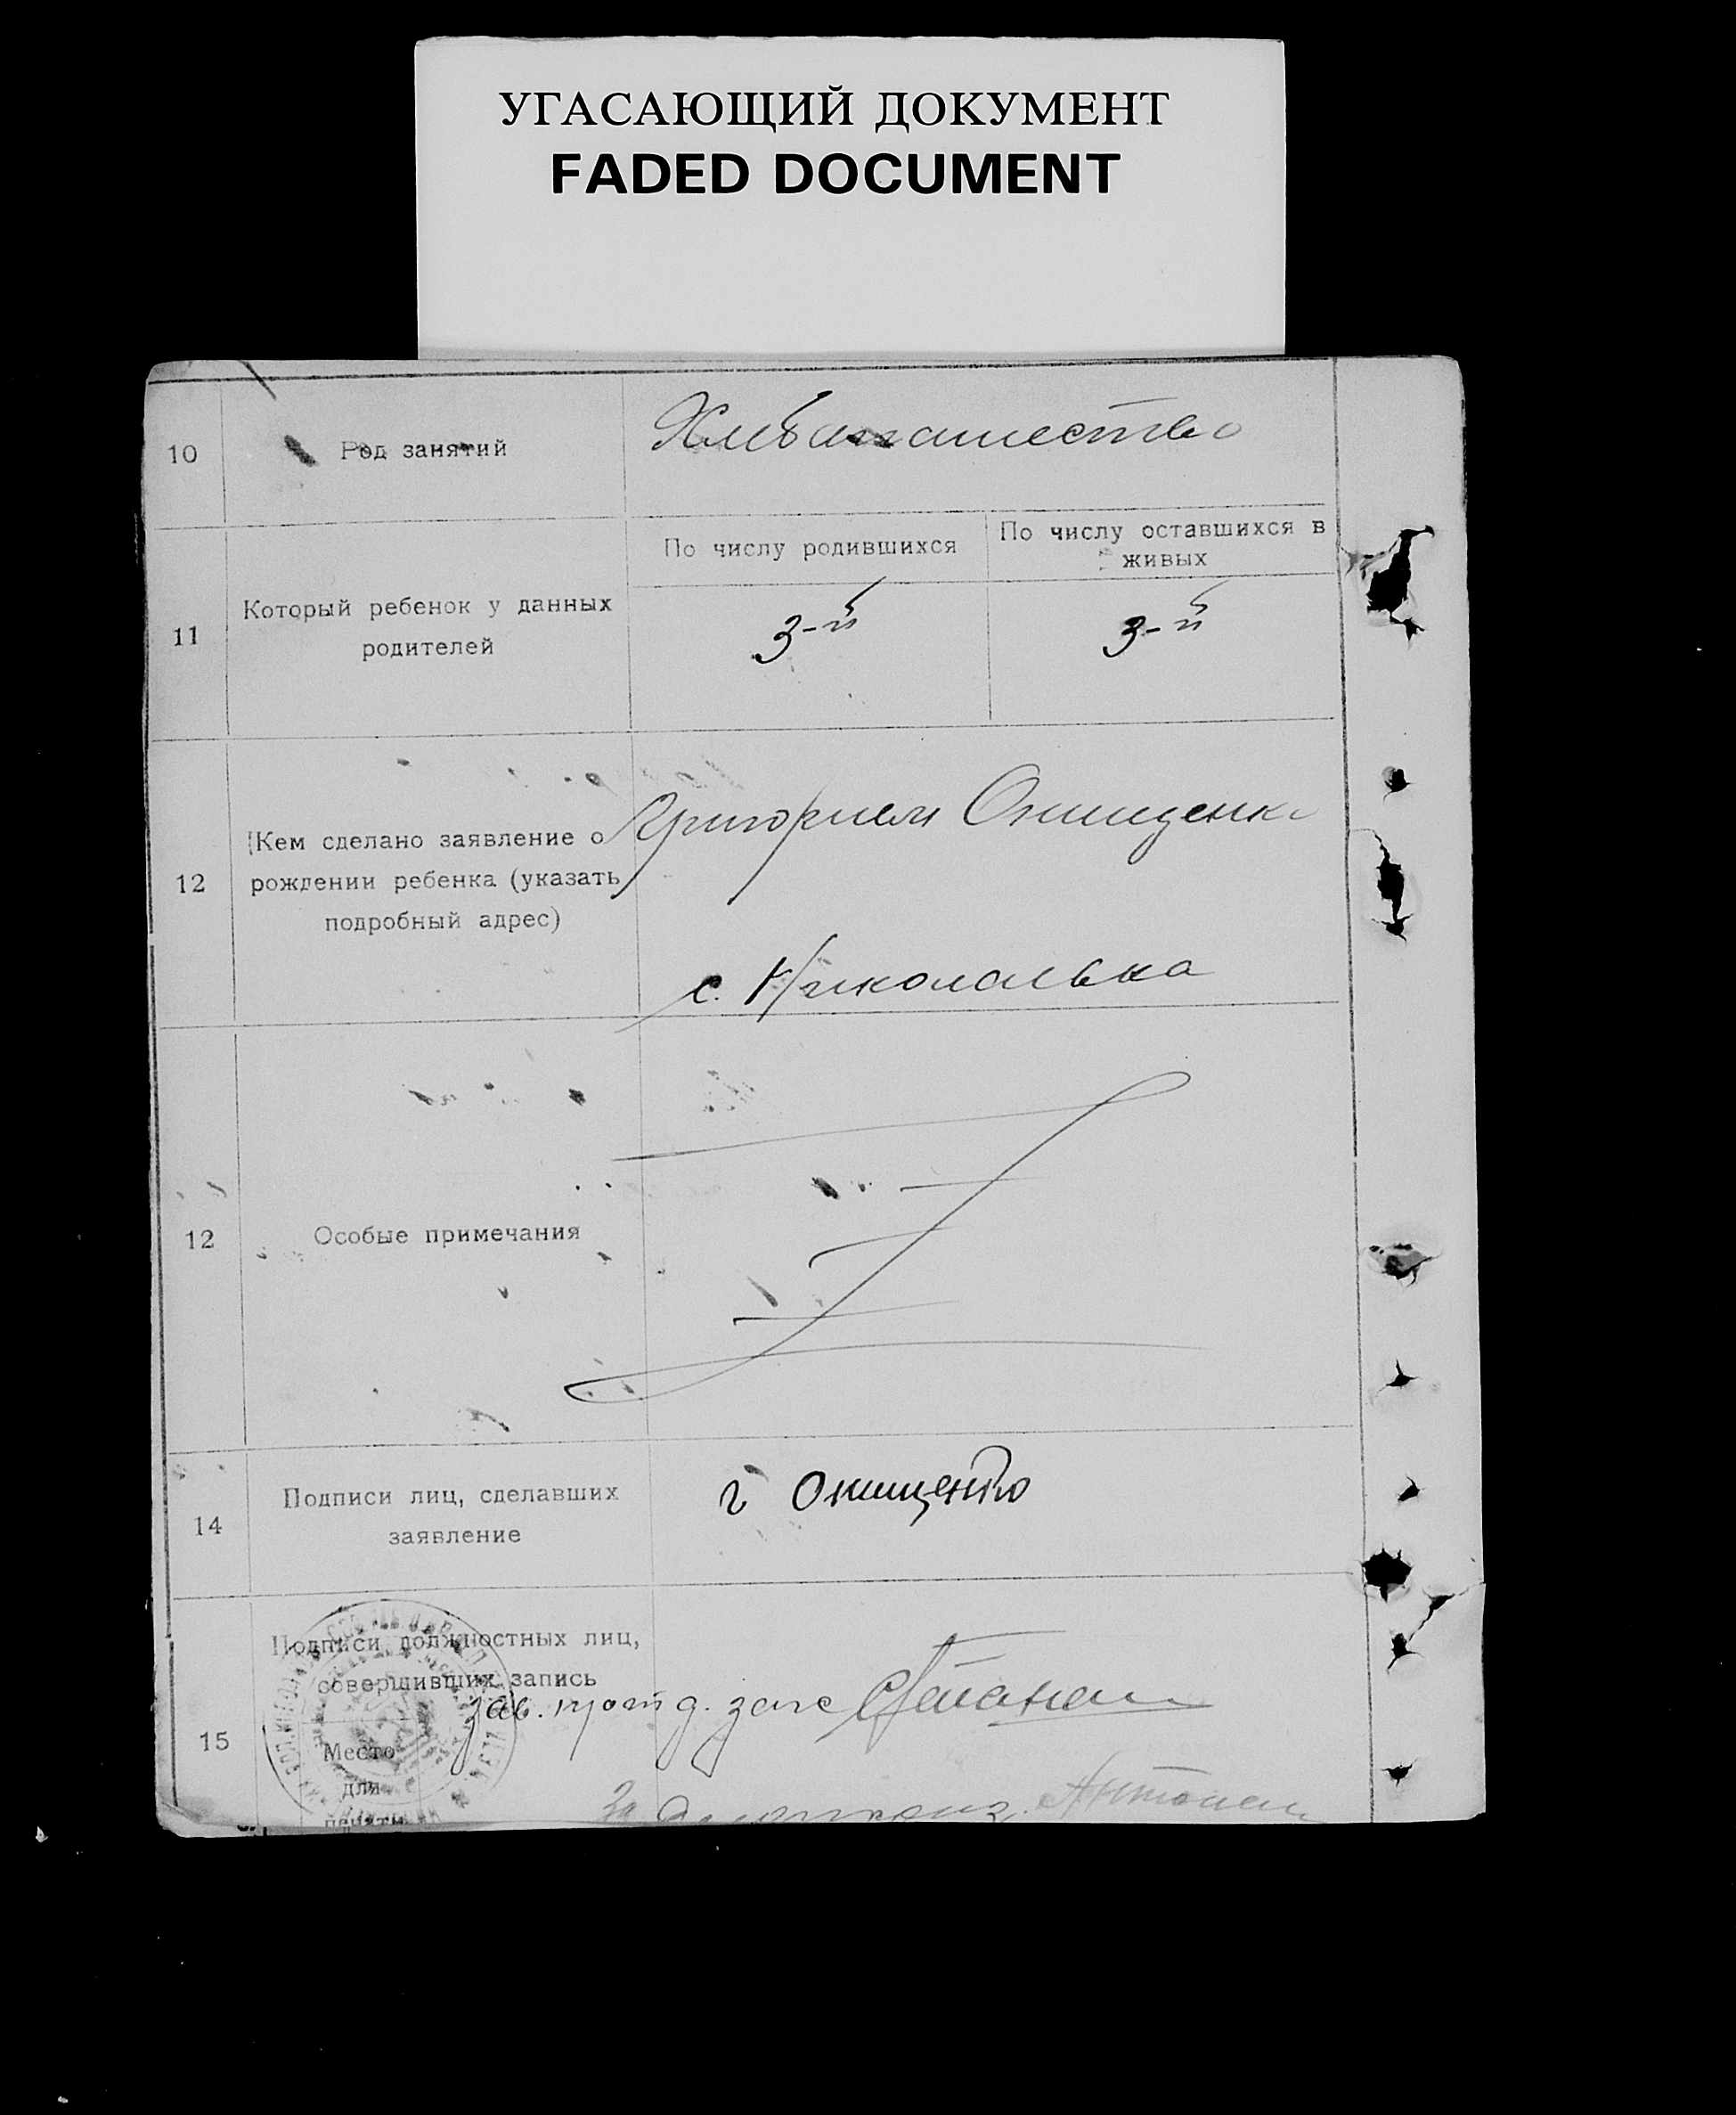 УГАСАЮЩИЙ ДОКУМЕНТ
FADED DOCUMENT
10
Род занятий
Хлебапашество
11
Который ребенок у данных
родителей
По числу родившихся
По числу оставшихся в
живых
3-й
3-й
12
Кем сделано заявление о
рождении ребенка (указать
подробный адрес)
Григорием Онищенко
с. Николаевка
12
Особые примечания
14
Подписи лиц, сделавших
заявление
Г Онищенко
15
Подписи должностных лиц,
совершивших запись
Зав. подотд. загс
Место
для
печати
За